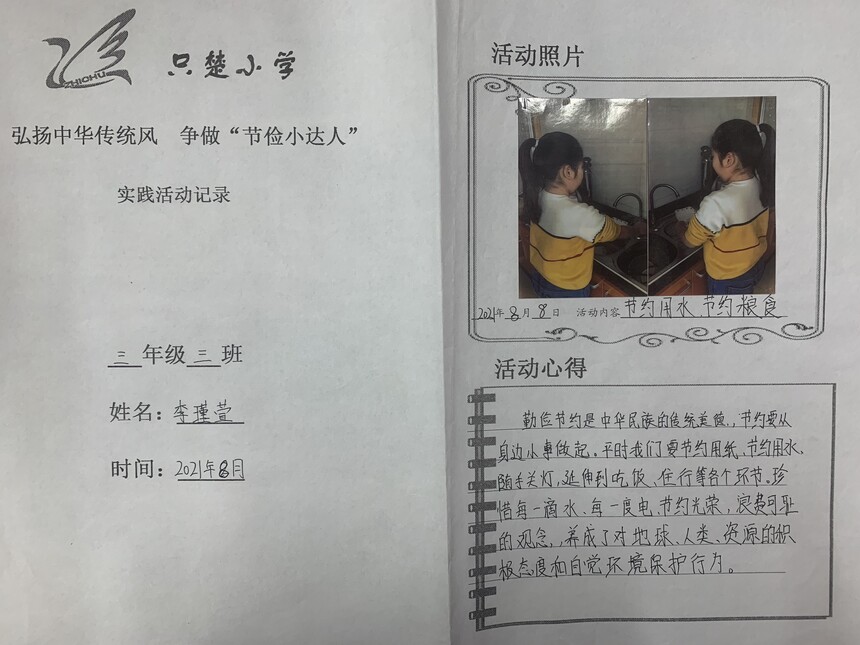 ZHICHU
只楚小学
弘扬中华传统风 争做“节俭小达人”
实践活动记录
三年级三班
姓名：李瑾萱
时间：2021年8月
活动照片
2021年8月8日 活动内容节约用水 节约粮食
活动心得
勤俭节约是中华民族的传统美德，节约要从
身边小事做起。平时我们要节约用纸、节约用水、
随手关灯，延伸到吃饭、住行等各个环节。珍
惜每一滴水、每一度电、节约光荣，浪费可耻
的观念，养成了对地球、人类、资源的积
极态度和自觉环境保护行为。